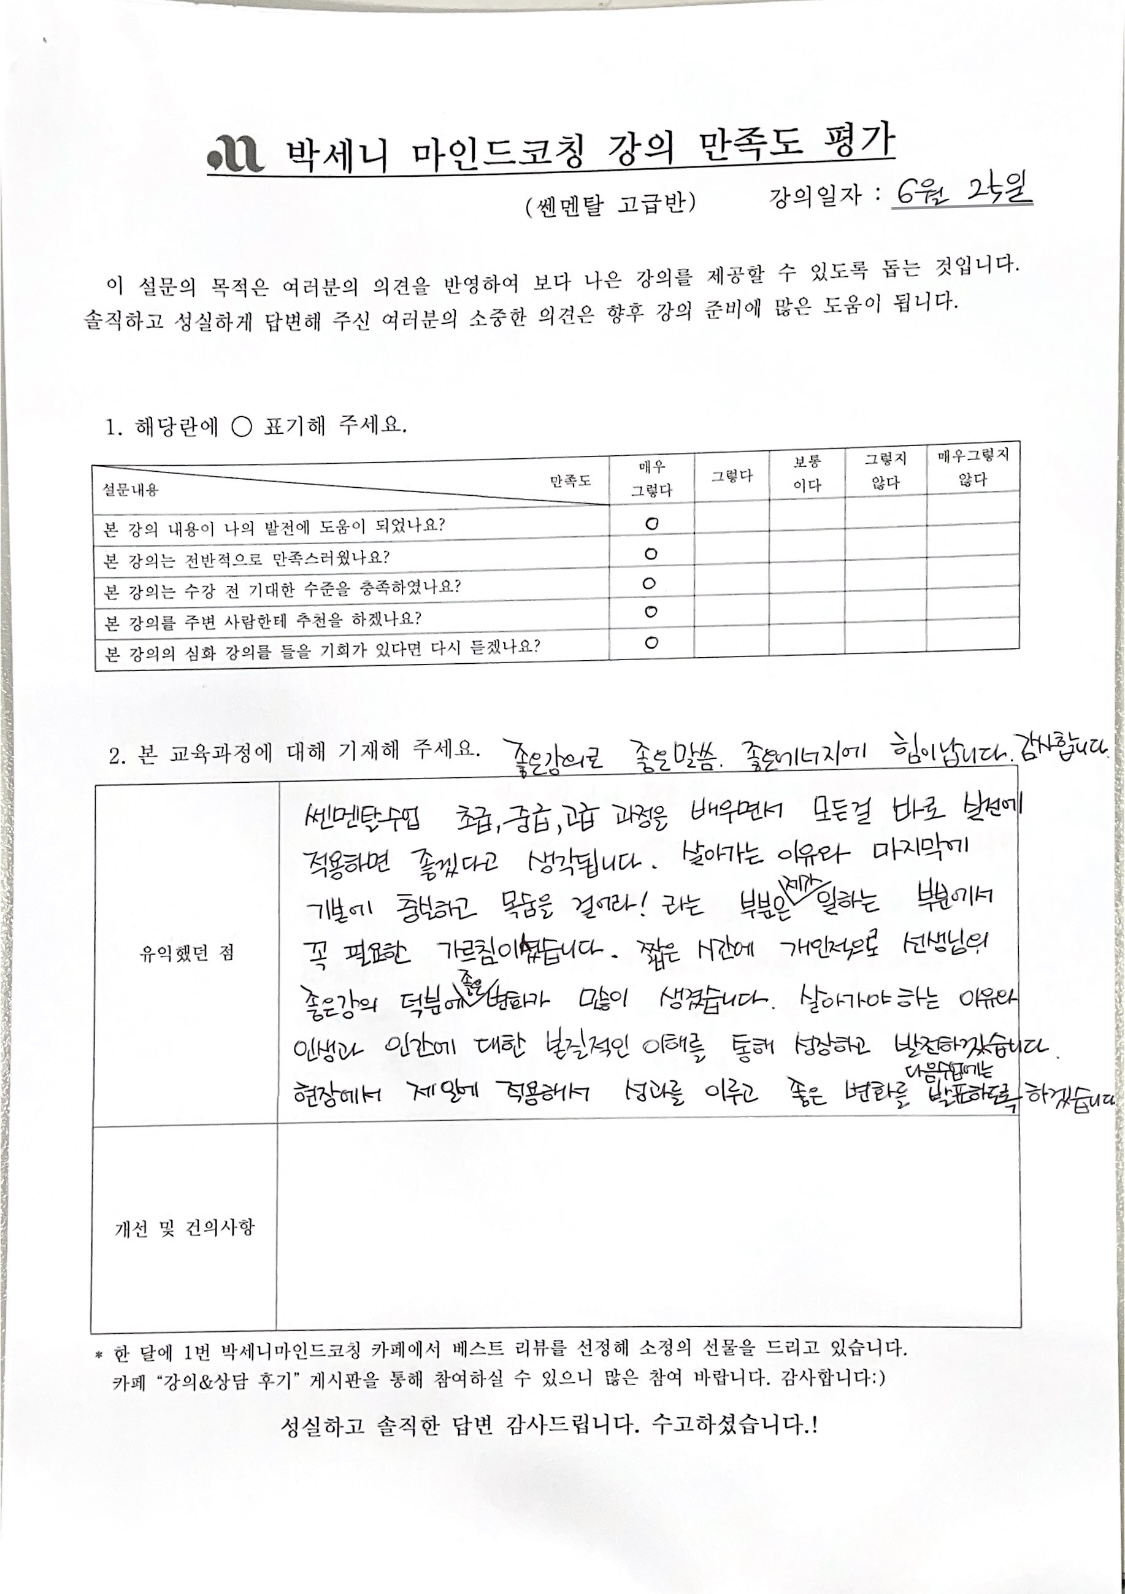 박세니 마인드코칭 강의 만족도 평가
(쎈멘탈 고급반) 강의일자 : 6월 25일
이 설문의 목적은 여러분의 의견을 반영하여 보다 나은 강의를 제공할 수 있도록 돕는 것입니다.
솔직하고 성실하게 답변해 주신 여러분의 소중한 의견은 향후 강의 준비에 많은 도움이 됩니다.
1. 해당란에 ○ 표기해 주세요.
설문내용 만족도 매우 그렇다 그렇다 보통이다 그렇지 않다 매우그렇지 않다
본 강의 내용이 나의 발전에 도움이 되었나요? ○
본 강의는 전반적으로 만족스러웠나요? ○
본 강의는 수강 전 기대한 수준을 충족하였나요? ○
본 강의를 주변 사람한테 추천을 하겠나요? ○
본 강의의 심화 강의를 들을 기회가 있다면 다시 듣겠나요? ○
2. 본 교육과정에 대해 기재해 주세요. 좋은강의로 좋은말씀. 좋은에너지에 힘이납니다. 감사합니다.
유익했던 점
쎈멘탈수업 초급, 중급, 고급 과정을 배우면서 모든걸 바로 실전에
적용하면 좋겠다고 생각됩니다. 살아가는 이유와 마지막에
기본에 충실하고 목숨을 걸어라! 라는 부분은 제가 일하는 부분에서
꼭 필요한 가르침이였습니다. 짧은 시간에 개인적으로 선생님의
좋은강의 덕분에 좋은 변화가 많이 생겼습니다. 살아가야 하는 이유와
인생과 인간에 대한 본질적인 이해를 통해 성장하고 발전하겠습니다.
현장에서 제 일에 적용해서 성과를 이루고 좋은 변화를 다음수업에는 발표하도록 하겠습니다
개선 및 건의사항
* 한 달에 1번 박세니마인드코칭 카페에서 베스트 리뷰를 선정해 소정의 선물을 드리고 있습니다.
카페 “강의&상담 후기” 게시판을 통해 참여하실 수 있으니 많은 참여 바랍니다. 감사합니다:)
성실하고 솔직한 답변 감사드립니다. 수고하셨습니다.!